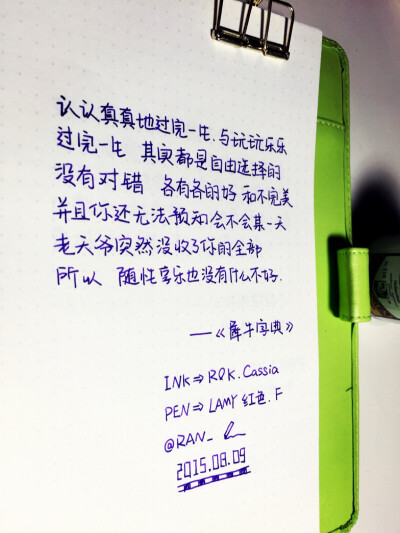 认认真真地过完一生.与玩玩乐乐
过完一生 其实都是自由选择的
没有对错 各有各的好 和不完美
并且你还无法预知会不会某一天
老天爷突然没收了你的全部
所以 随性享乐也没有什么不好.
——《犀牛字典》
INK⇒R&K.Cassia
PEN⇒LAMY 红色.F
@RAN_
2015.08.09